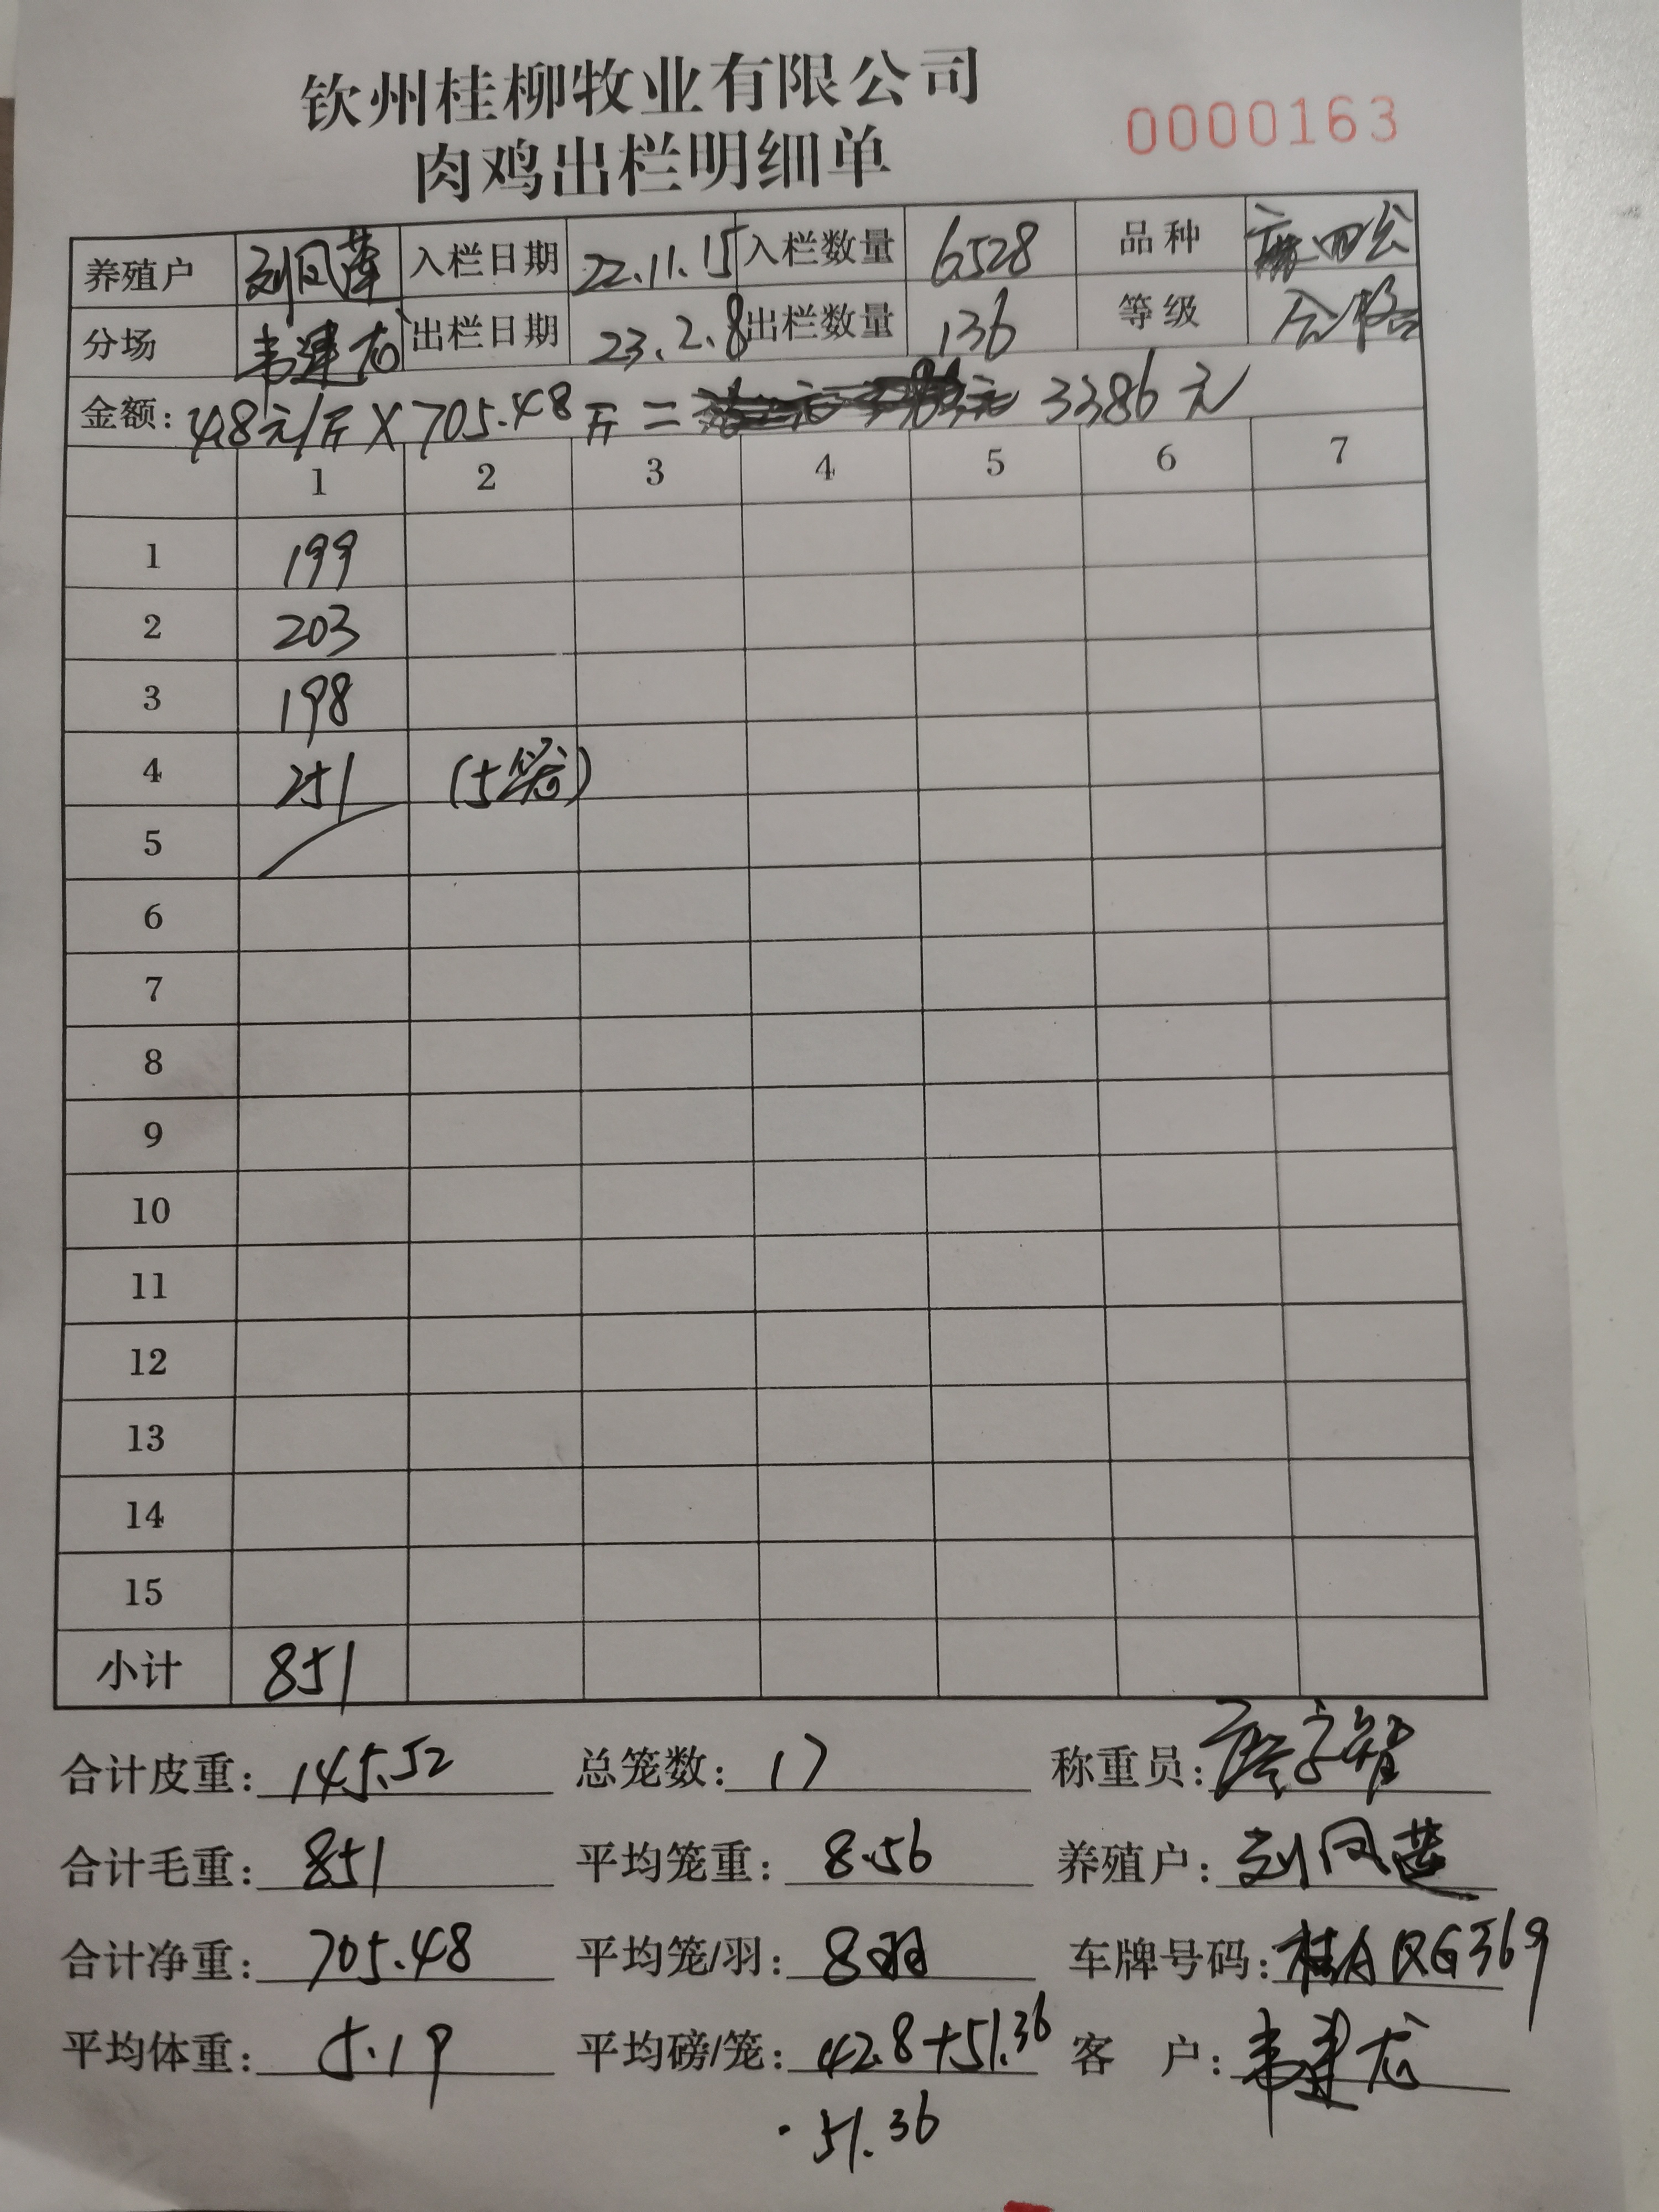 钦州桂柳牧业有限公司
肉鸡出栏明细单
0000163
养殖户 刘凤莲 入栏日期 22.11.15 入栏数量 6528 品种 麻四公
分场 韦建龙 出栏日期 23.2.8 出栏数量 136 等级 合格
金额: 4.8元/斤×705.48斤= 3386元
1 2 3 4 5 6 7
1 199
2 203
3 198
4 251 (5笼)
5
6
7
8
9
10
11
12
13
14
15
小计 851
合计皮重: 145.52 总笼数: 17 称重员:
合计毛重: 851 平均笼重: 8.56 养殖户: 刘凤莲
合计净重: 705.48 平均笼/羽: 8羽 车牌号码: 桂A RG369
平均体重: 5.19 平均磅/笼: 42.8+51.36 客 户: 韦建龙
.51.36